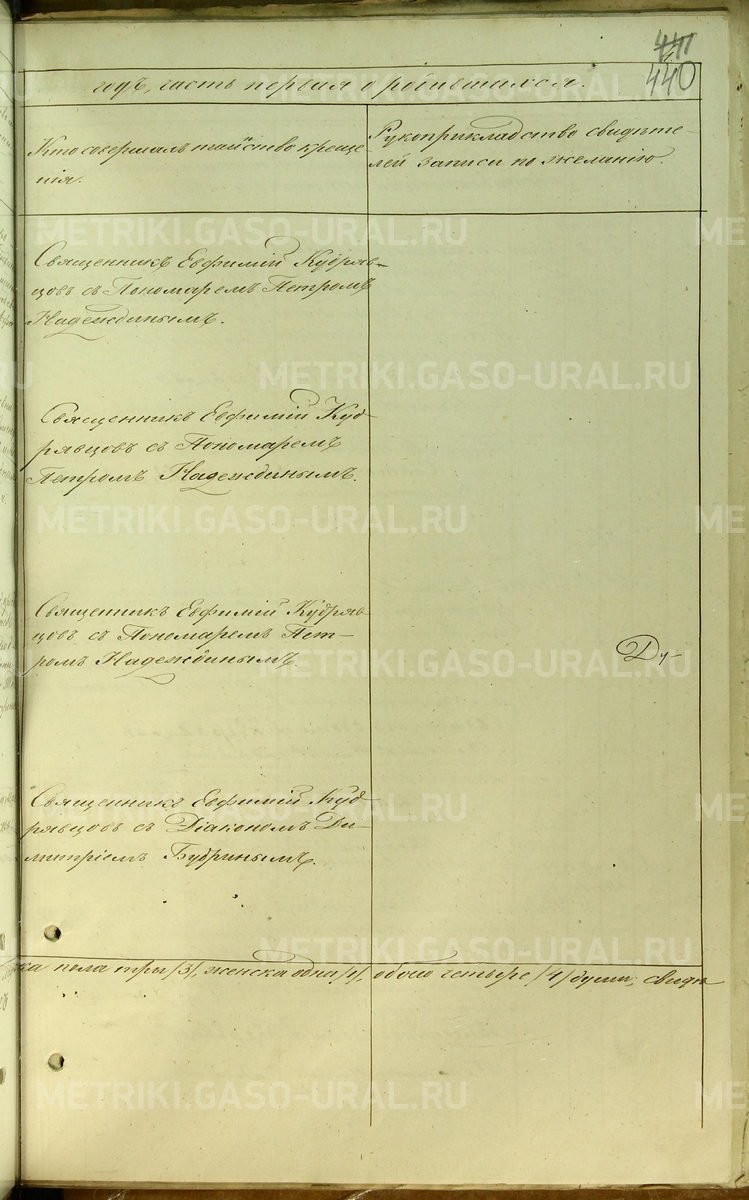 441
440
годъ, часть первая о родившихся.
Кто совершалъ таинство креще
нія.
Рукоприкладство свидѣте-
лей записи по желанію.
Священникъ Евфимій Кудряв-
цовъ съ Пономаремъ Петромъ
Надеждинымъ.
Священникъ Евфимій Куд
рявцовъ съ Пономаремъ
Петромъ Надеждинымъ.
Священникъ Евфимій Кудряв
цовъ съ Пономаремъ Пет-
ромъ Надеждинымъ.
Ду-
Священникъ Евфимій Куд
рявцовъ съ Діакономъ Ди-
митріемъ Бубринымъ.
ска пола три /3/, женска одна /1/, обоего четыре /4/ души, свидѣ
METRIKI.GASO-URAL.RU